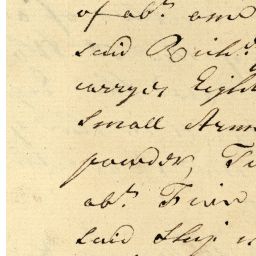 of abt. one
said Richd.
carryes Eight
Small Arm
powder, T
abt. Five
said Ship